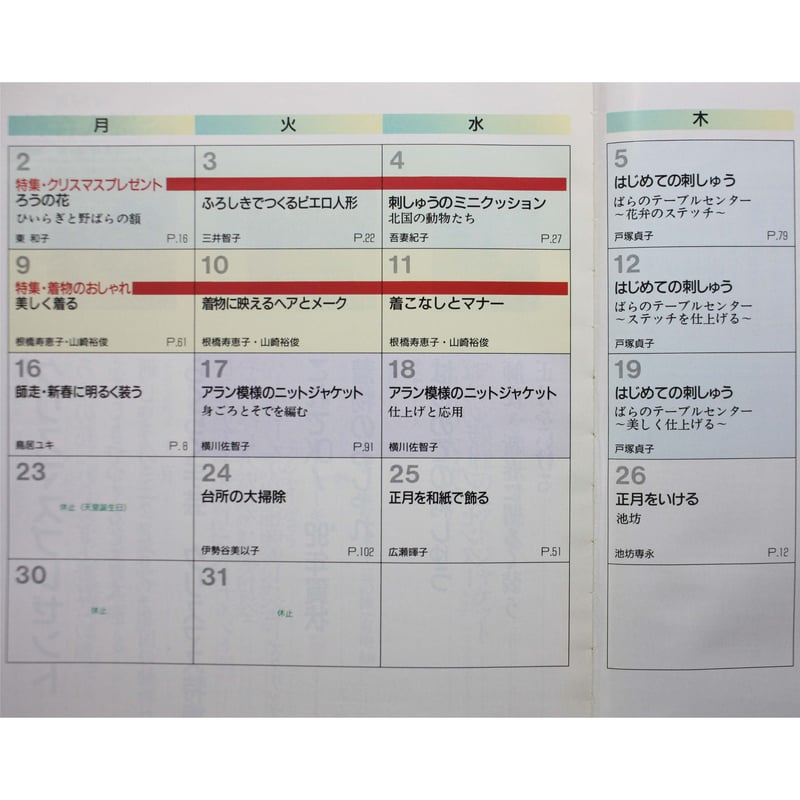 月 火 水 木
2
特集・クリスマスプレゼント
ろうの花
ひいらぎと野ばらの額
東 和子 P.16
3
ふろしきでつくるピエロ人形
三井智子 P.22
4
刺しゅうのミニクッション
北国の動物たち
吾妻紀子 P.27
5
はじめての刺しゅう
ばらのテーブルセンター
〜花弁のステッチ〜
戸塚貞子 P.79
9
特集・着物のおしゃれ
美しく着る
根橋寿恵子・山崎裕俊 P.61
10
着物に映えるヘアとメーク
根橋寿恵子・山崎裕俊
11
着こなしとマナー
根橋寿恵子・山崎裕俊
12
はじめての刺しゅう
ばらのテーブルセンター
〜ステッチを仕上げる〜
戸塚貞子
16
師走・新春に明るく装う
鳥居ユキ P.8
17
アラン模様のニットジャケット
身ごろとそでを編む
横川佐智子 P.91
18
アラン模様のニットジャケット
仕上げと応用
横川佐智子
19
はじめての刺しゅう
ばらのテーブルセンター
〜美しく仕上げる〜
戸塚貞子
23
休止（天皇誕生日）
24
台所の大掃除
伊勢谷美以子 P.102
25
正月を和紙で飾る
広瀬輝子 P.51
26
正月をいける
池坊
池坊専永 P.12
30
休止
31
休止